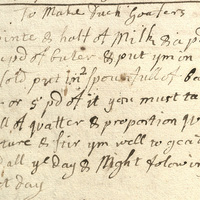 To Make Duch Goafers
pinte & halfe of Milk & a pd
pd of buter & put ym in
put in 2 spounfull of ba
or 5 pd of it you must ta
ll of quatter & proportion
ture & stir ym well to gea
d all ye day & Night folowin
xt day